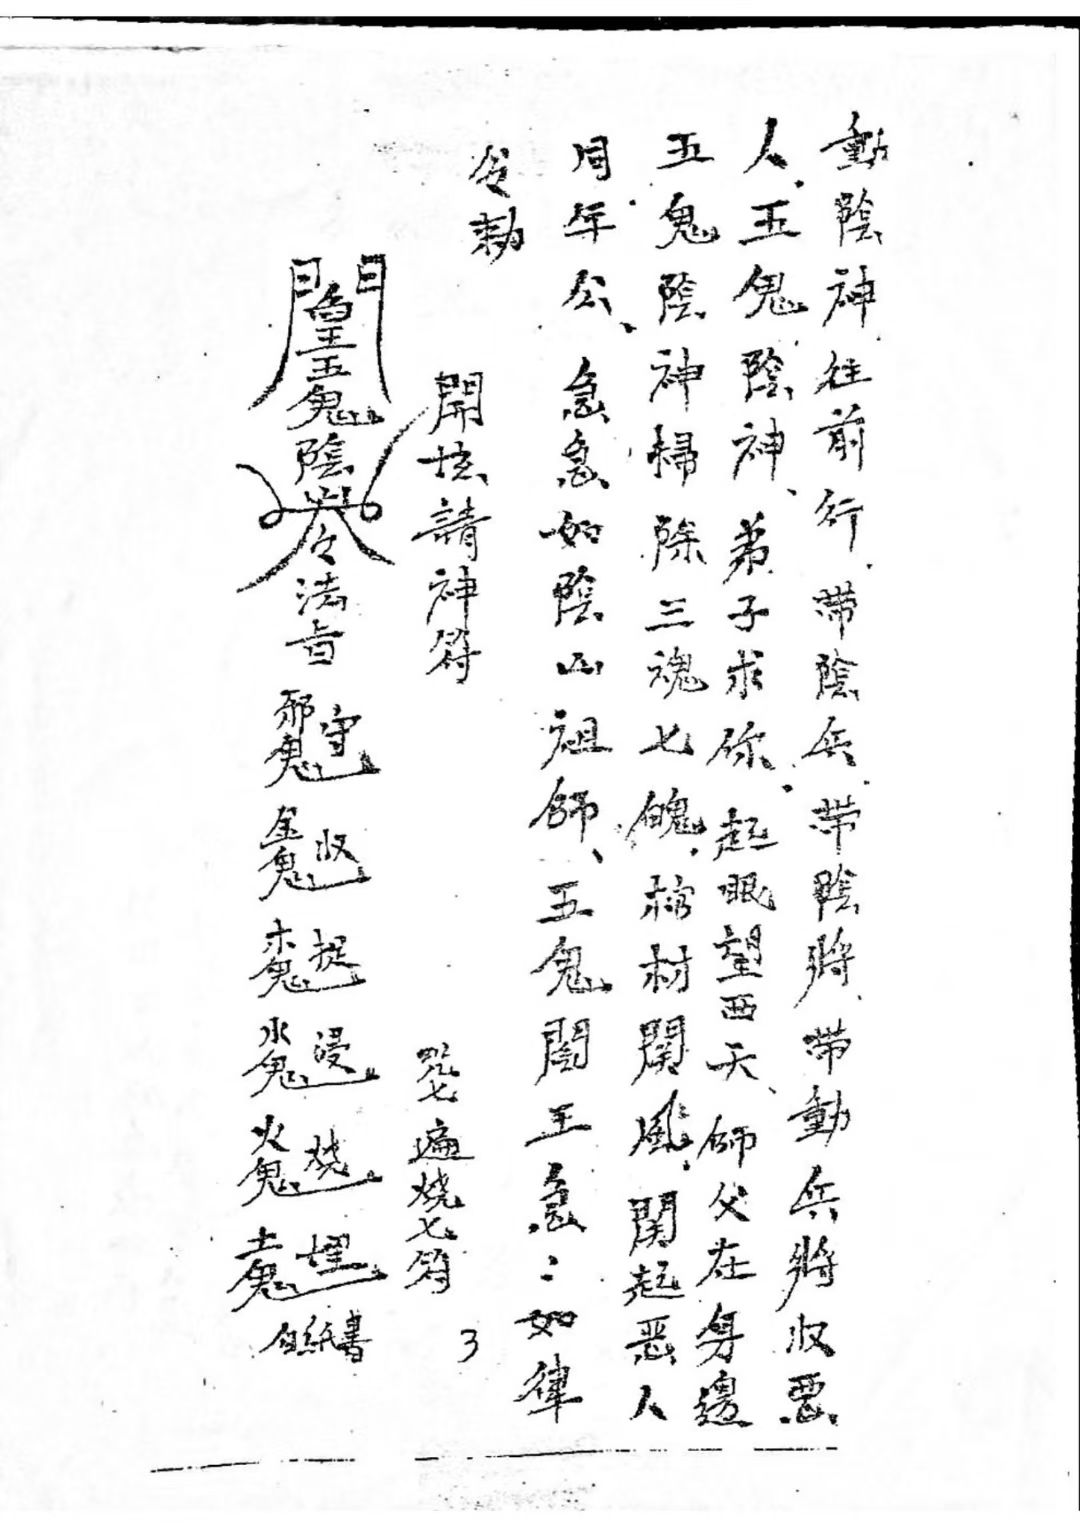 動陰神往前行、帶陰兵、帶陰將、帶動兵將收惡
人、五鬼陰神、弟子求你、起眼望西天、師父在身邊
五鬼陰神掃除三魂七魄、棺材開風、開起惡人
同年公、急急如陰山祖師、五鬼閻王急:如律
令勅
開壇請神符
咒七遍燒七符
3
五鬼陰
法旨
邪鬼 守
金鬼 收
木鬼 捉
水鬼 浸
火鬼 燒
土鬼 埋
白紙書